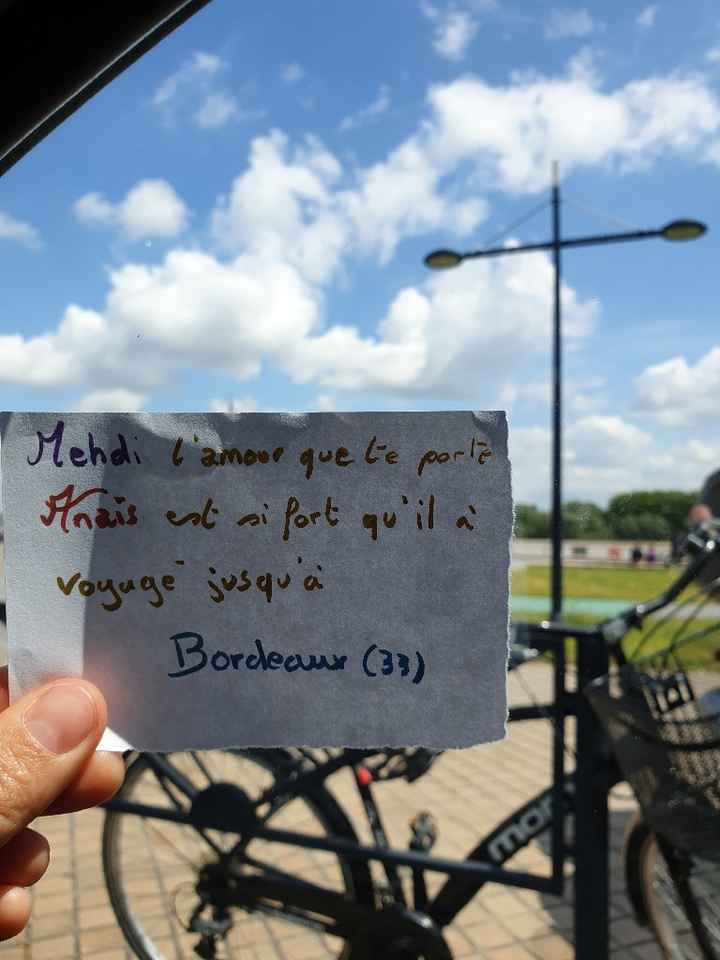 Mehdi l'amour que te porte
Anaïs est si fort qu'il à
voyagé jusqu'à
Bordeaux (33)